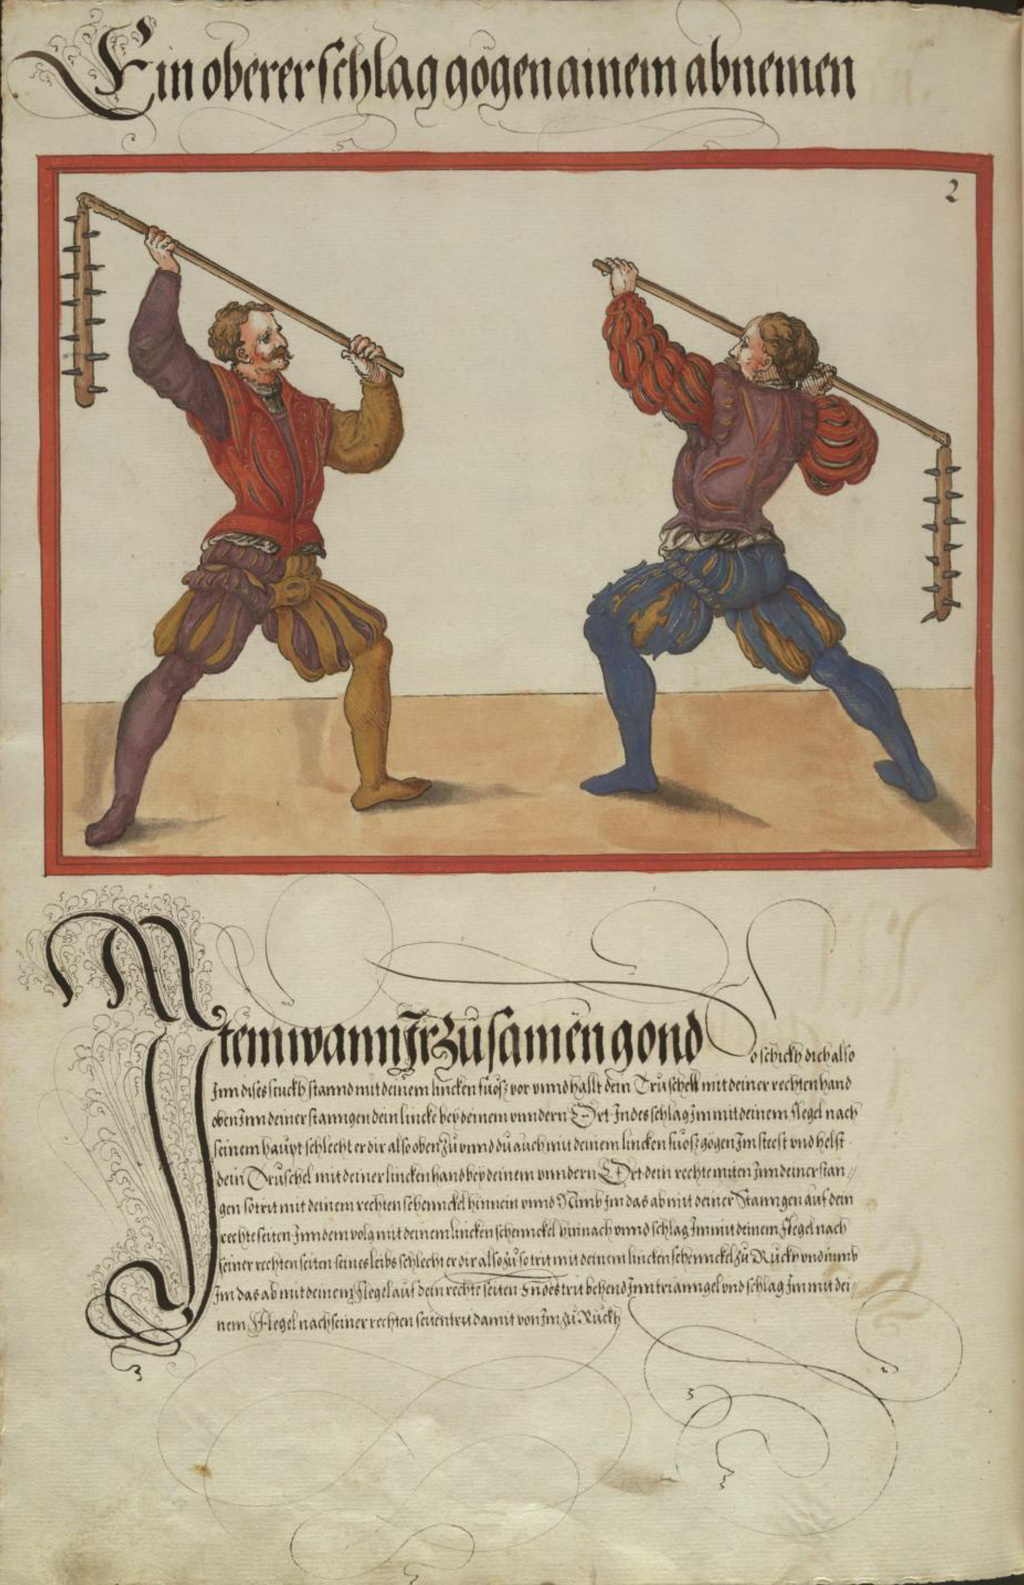 Ein oberer schlag gögen ainem abnemen
2
Item wann Ir zusamen gond So schickh dich also
Inn dises stuckh stannd mit deinem lincken fuosz vor vnnd hallt dein Druschell mit deiner rechten hand
oben Inn deiner stanngen dein lincke bey deinem vnndern Ort Indes schlag Im mit deinem flegel nach
seinem haupt schlecht er dir also oben zu vnnd du auch mit deinem lincken fuosz gögen Im steest vnd helst
dein Druschel mit deiner lincken hand bey deinem vnndern Ort dein rechte miten Inn deiner stan=
gen so trit mit deinem rechten schennckel hinnein vnnd Nimb Im das ab mit deiner Stanngen auf dein
rechte seiten Inn dem volg mit deinem lincken schennckel hinnach vnnd schlag Im mit deinem flegel nach
seiner rechten seiten seines leibs schlecht er dir also zu so trit mit deinem lincken schennckel zu Ruckh vnd nimb
Im das ab mit deinem flegel auf dein rechte seiten Indes trit behend Inn trianngel vnd schlag Im mit dei=
nem Flegel nach seiner rechten seiten trit damit von Im zu Ruckh